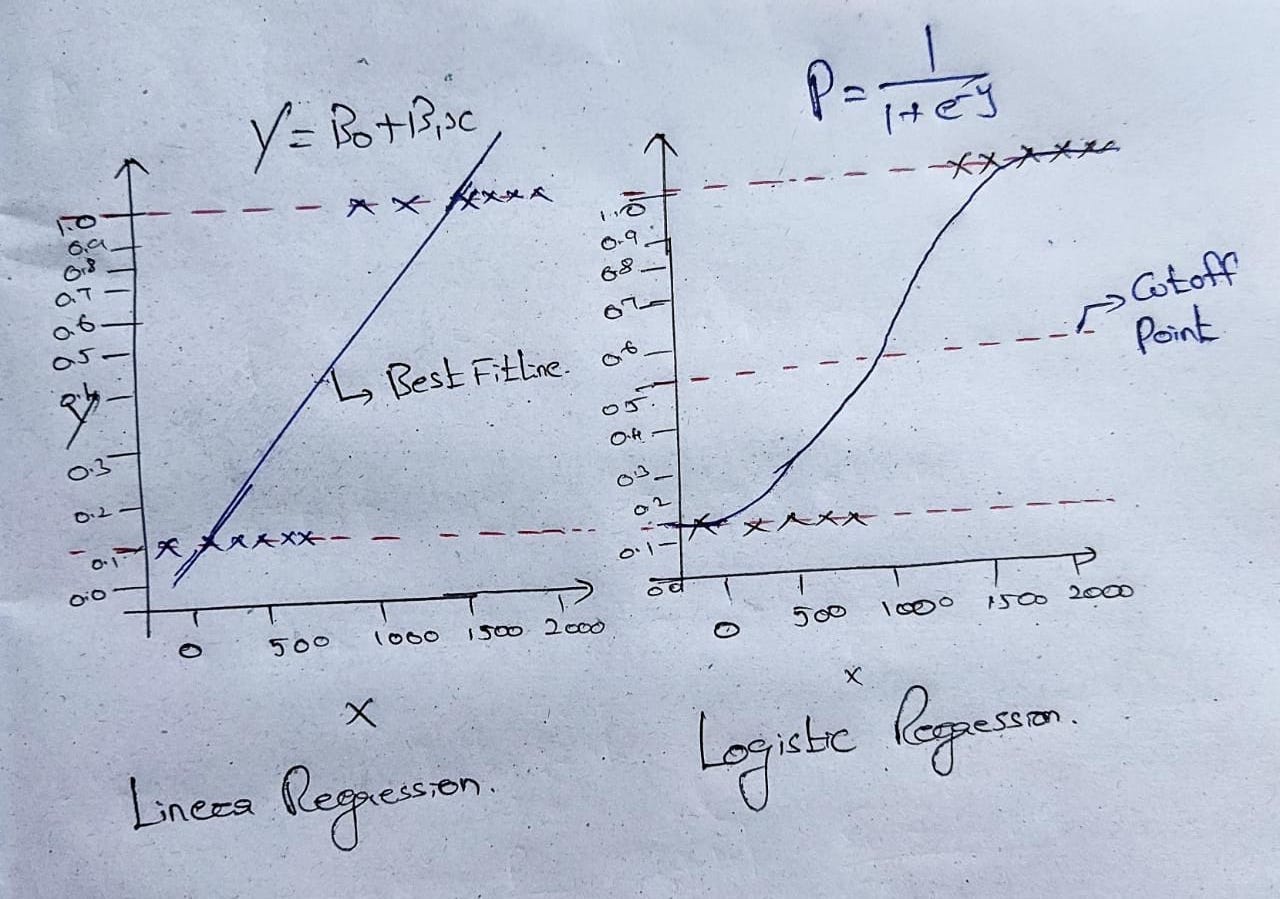 Y = B₀ + B₁x
1.0
0.9
0.8
0.7
0.6
0.5
0.4
Y
0.3
0.2
0.1
0.0
Best Fitline.
0
500
1000
1500
2000
x
Linear Regression.
P = 1 / 1 + e^-y
1.0
0.9
0.8
0.7
0.6
0.5
0.4
0.3
0.2
0.1
0.0
Cutoff
Point
0
500
1000
1500
2000
x
Logistic Regression.